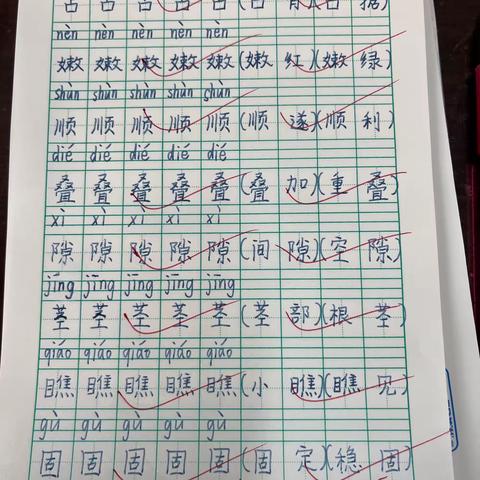 占 占 占 占 占 (占 有)(占 据)
nèn nèn nèn nèn nèn
嫩 嫩 嫩 嫩 嫩 (嫩 红)(嫩 绿)
shùn shùn shùn shùn shùn
顺 顺 顺 顺 顺 (顺 遂)(顺 利)
dié dié dié dié dié
叠 叠 叠 叠 叠 (叠 加)(重 叠)
xì xì xì xì xì
隙 隙 隙 隙 隙 (间 隙)(空 隙)
jīng jīng jīng jīng jīng
茎 茎 茎 茎 茎 (茎 部)(根 茎)
qiáo qiáo qiáo qiáo qiáo
瞧 瞧 瞧 瞧 瞧 (小 瞧)(瞧 见)
gù gù gù gù gù
固 固 固 固 固 (固 定)(稳 固)